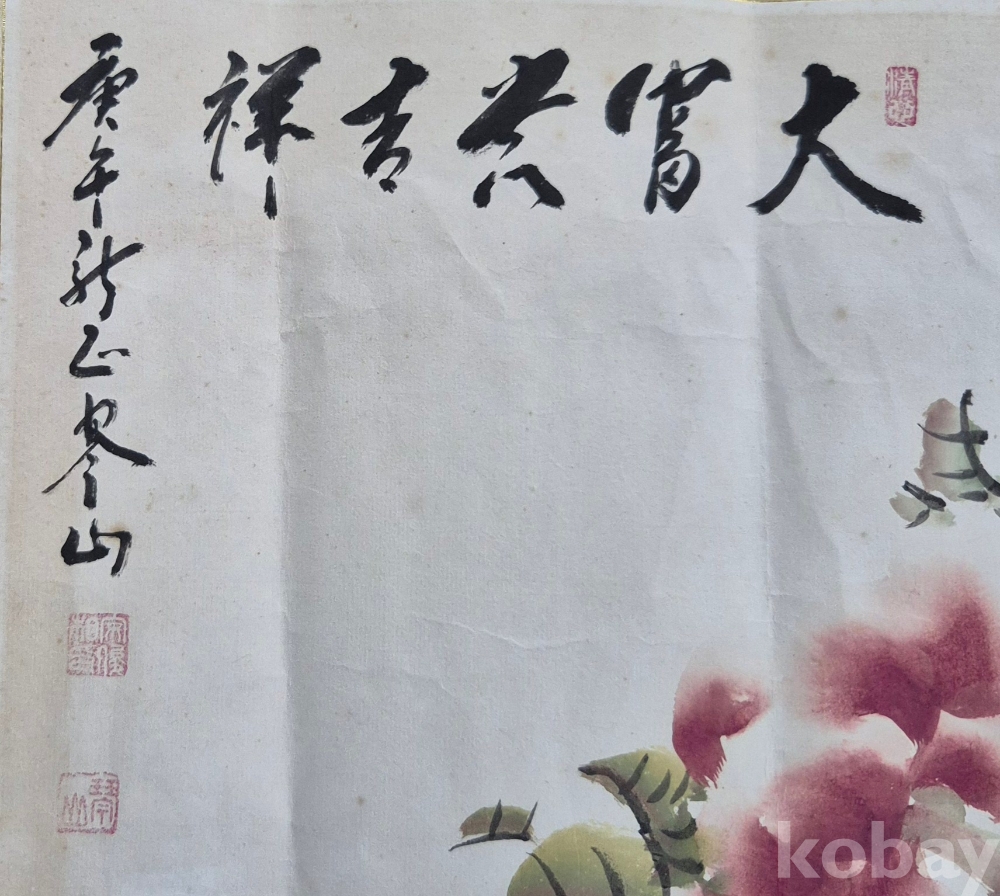 大富貴吉祥
庚午新正 琴山
琴山
kobay